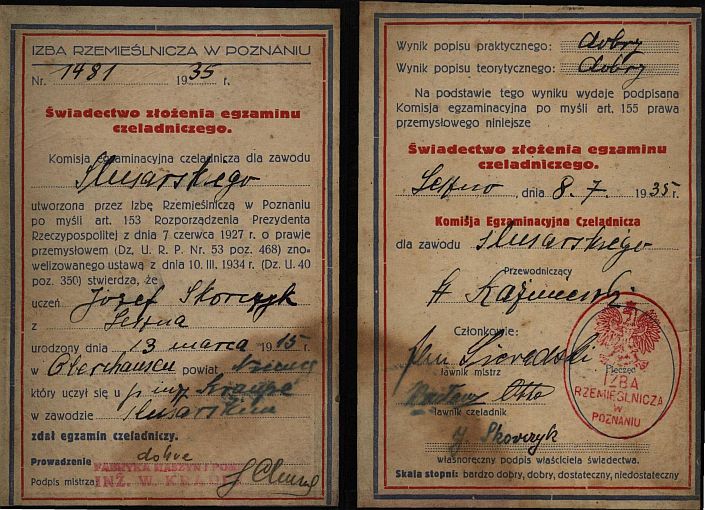 IZBA RZEMIEŚLNICZA W POZNANIU
Nr. 1481 1935 r.
Świadectwo złożenia egzaminu
czeladniczego.
Komisja egzaminacyjna czeladnicza dla zawodu
Ślusarskiego
utworzona przez Izbę Rzemieślniczą w Poznaniu
po myśli art. 153 Rozporządzenia Prezydenta
Rzeczypospolitej z dnia 7 czerwca 1927 r. o prawie
przemysłowem (Dz. U. R. P. Nr. 53 poz. 468) zno-
welizowanego ustawą z dnia 10. III. 1934 r. (Dz. U. 40
poz. 350) stwierdza, że
uczeń Józef Skorczyk
z Leszna
urodzony dnia 13 marca 1915 r.
w Oberhausen powiat Niemcy
który uczył się u p. inż. Krause
w zawodzie ślusarskim
zdał egzamin czeladniczy.
Prowadzenie dobre
Podpis mistrza
INŻ. W. KRAUSE
Wynik popisu praktycznego: dobry
Wynik popisu teorytycznego: dobry
Na podstawie tego wyniku wydaje podpisana
Komisja egzaminacyjna po myśli art. 155 prawa
przemysłowego niniejsze
Świadectwo złożenia egzaminu
czeladniczego.
Leszno, dnia 8. 7. 1935 r.
Komisja Egzaminacyjna Czeladnicza
dla zawodu ślusarskiego
Przewodniczący
Członkowie:
ławnik mistrz
Otto
ławnik czeladnik
J. Skorczyk
własnoręczny podpis właściciela świadectwa.
Skala stopni: bardzo dobry, dobry, dostateczny, niedostateczny
Pieczęć
IZBA
RZEMIEŚLNICZA
W
POZNANIU